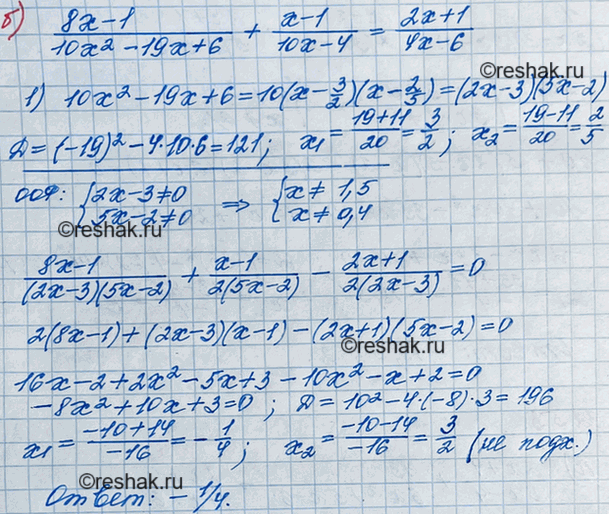 б) (8x-1)/(10x²-19x+6) + (x-1)/(10x-4) = (2x+1)/(4x-6)
1) 10x²-19x+6=10(x-3/2)(x-2/5)=(2x-3)(5x-2)
Д=(-19)²-4·10·6=121; x₁=(19+11)/20=3/2; x₂=(19-11)/20=2/5
©reshak.ru
ООФ: {2x-3≠0 5x-2≠0 ⇒ {x≠1,5 x≠0,4
©reshak.ru
(8x-1)/((2x-3)(5x-2)) + (x-1)/(2(5x-2)) - (2x+1)/(2(2x-3)) =0
2(8x-1)+(2x-3)(x-1)-(2x+1)(5x-2)=0
©reshak.ru
16x-2+2x²-5x+3-10x²-x+2=0
-8x²+10x+3=0; Д=10²-4·(-8)·3=196
x₁=(-10+14)/-16=-1/4; x₂=(-10-14)/-16=3/2 (не подх.)
©reshak.ru
Ответ: -1/4.